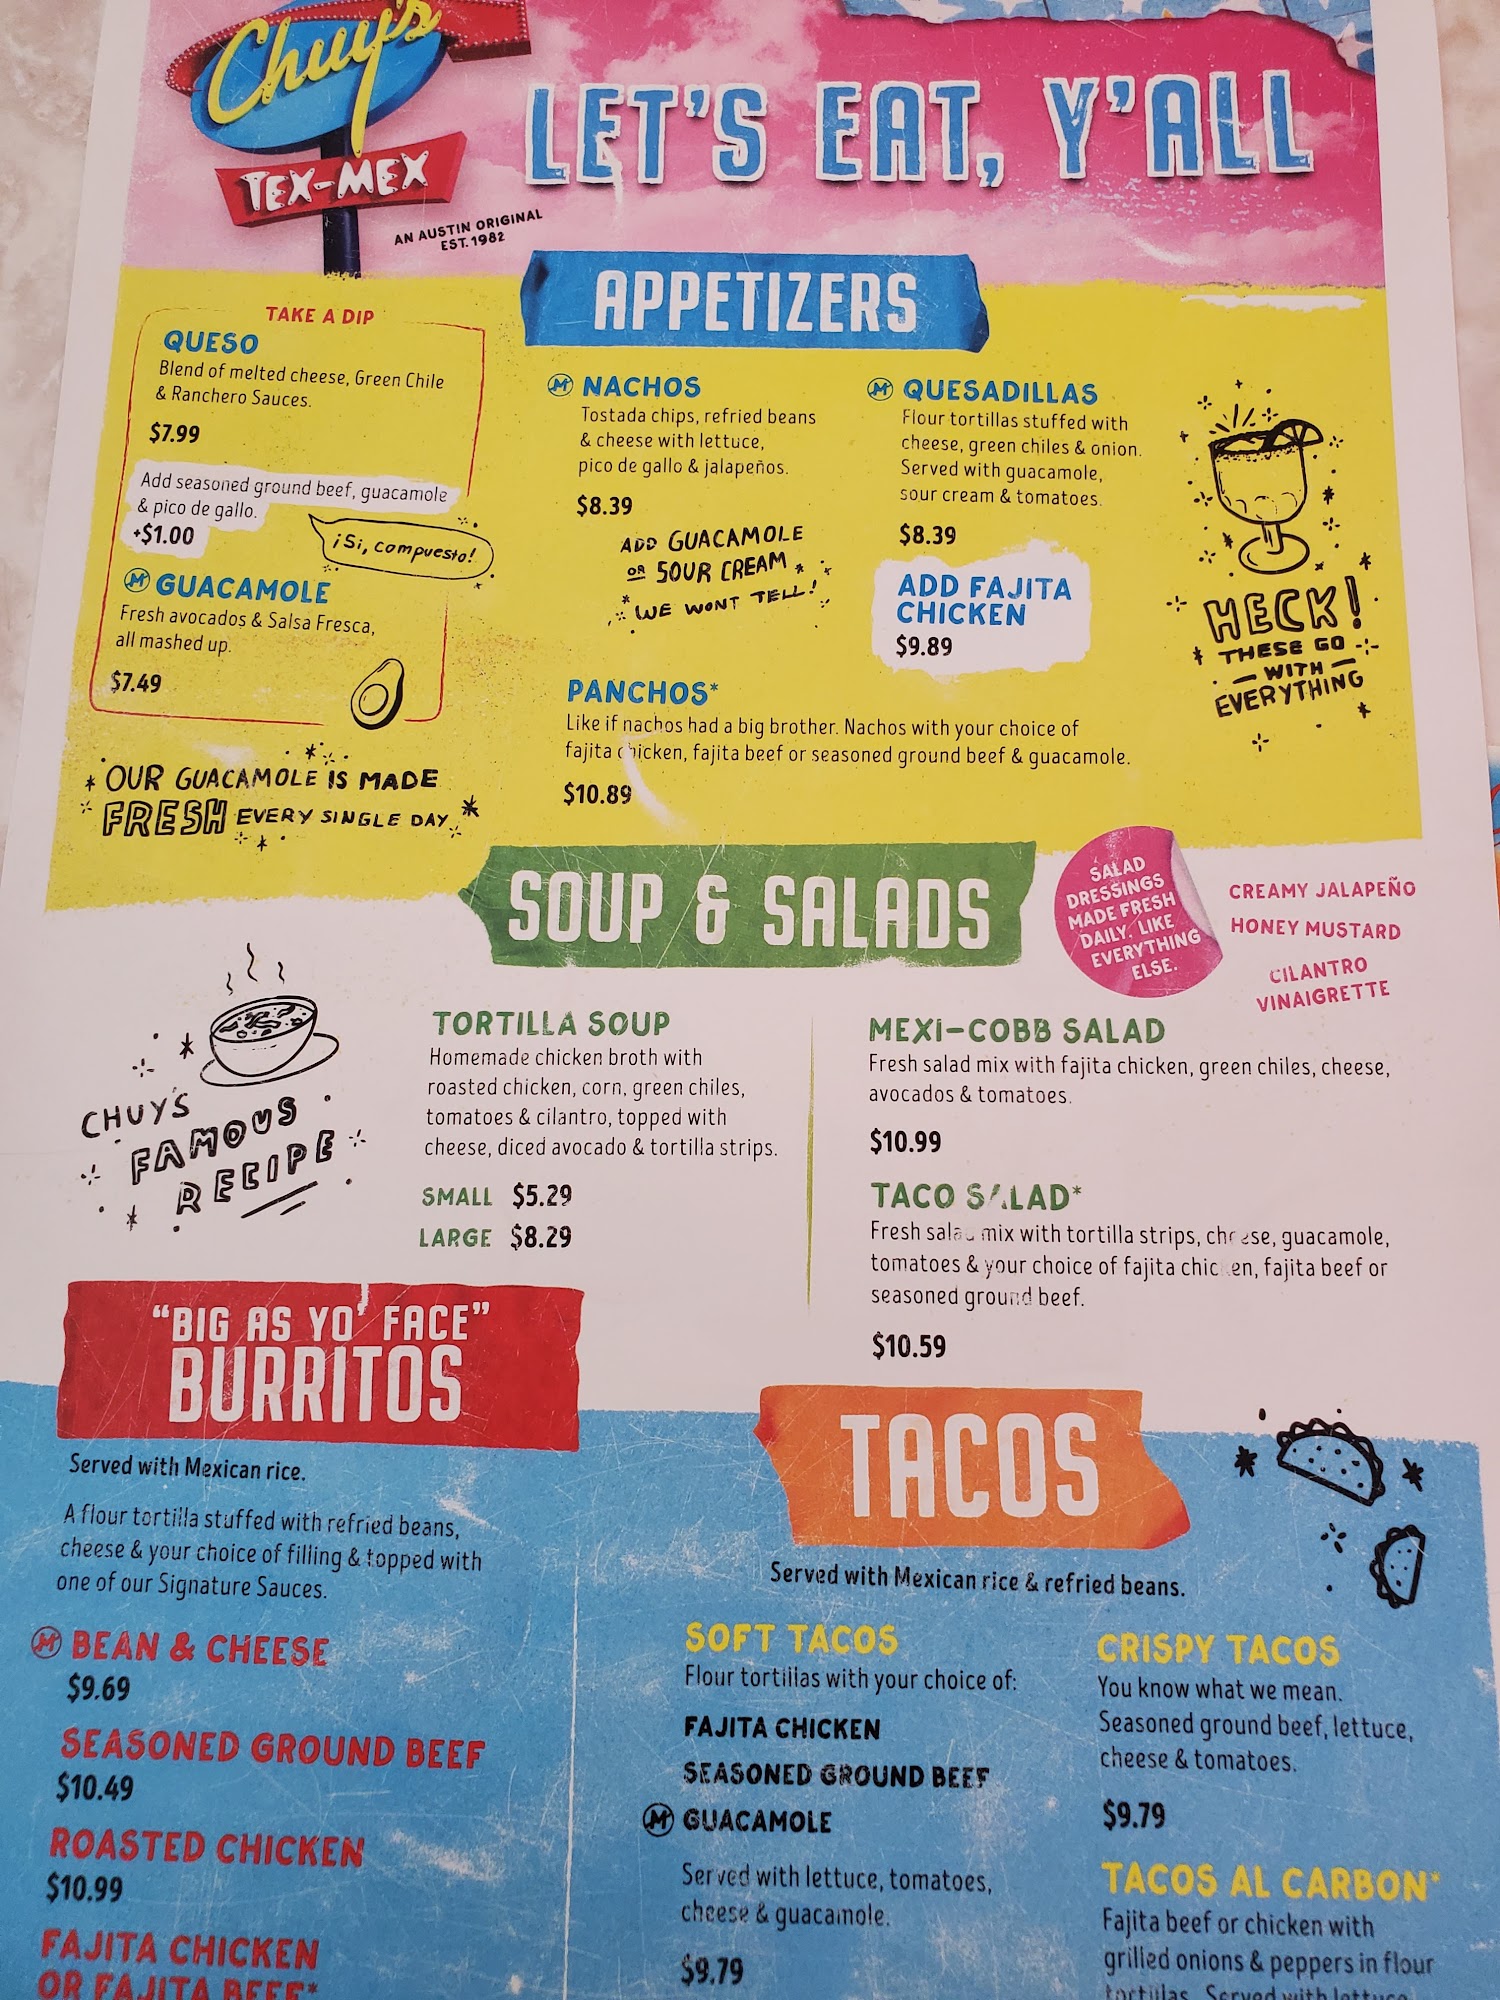 Chuy's
TEX-MEX
AN AUSTIN ORIGINAL
EST. 1982
LET'S EAT, Y'ALL
APPETIZERS
TAKE A DIP
QUESO
Blend of melted cheese, Green Chile
& Ranchero Sauces.
$7.99
Add seasoned ground beef, guacamole
& pico de gallo.
+$1.00
¡Si, compuesto!
M GUACAMOLE
Fresh avocados & Salsa Fresca,
all mashed up.
$7.49
OUR GUACAMOLE IS MADE
FRESH EVERY SINGLE DAY
M NACHOS
Tostada chips, refried beans
& cheese with lettuce,
pico de gallo & jalapeños.
$8.39
ADD GUACAMOLE
OR SOUR CREAM
WE WONT TELL!
M QUESADILLAS
Flour tortillas stuffed with
cheese, green chiles & onion.
Served with guacamole,
sour cream & tomatoes.
$8.39
ADD FAJITA
CHICKEN
$9.89
PANCHOS*
Like if nachos had a big brother. Nachos with your choice of
fajita chicken, fajita beef or seasoned ground beef & guacamole.
$10.89
HECK!
THESE GO
WITH
EVERYTHING
SOUP & SALADS
SALAD
DRESSINGS
MADE FRESH
DAILY. LIKE
EVERYTHING
ELSE.
CREAMY JALAPEÑO
HONEY MUSTARD
CILANTRO
VINAIGRETTE
CHUY'S
FAMOUS
RECIPE
TORTILLA SOUP
Homemade chicken broth with
roasted chicken, corn, green chiles,
tomatoes & cilantro, topped with
cheese, diced avocado & tortilla strips.
SMALL $5.29
LARGE $8.29
MEXI-COBB SALAD
Fresh salad mix with fajita chicken, green chiles, cheese,
avocados & tomatoes.
$10.99
TACO SALAD*
Fresh salad mix with tortilla strips, cheese, guacamole,
tomatoes & your choice of fajita chicken, fajita beef or
seasoned ground beef.
$10.59
"BIG AS YO' FACE"
BURRITOS
Served with Mexican rice.
A flour tortilla stuffed with refried beans,
cheese & your choice of filling & topped with
one of our Signature Sauces.
M BEAN & CHEESE
$9.69
SEASONED GROUND BEEF
$10.49
ROASTED CHICKEN
$10.99
FAJITA CHICKEN
OR FAJITA BEEF*
TACOS
Served with Mexican rice & refried beans.
SOFT TACOS
Flour tortillas with your choice of:
FAJITA CHICKEN
SEASONED GROUND BEEF
M GUACAMOLE
Served with lettuce, tomatoes,
cheese & guacamole.
$9.79
CRISPY TACOS
You know what we mean.
Seasoned ground beef, lettuce,
cheese & tomatoes.
$9.79
TACOS AL CARBON*
Fajita beef or chicken with
grilled onions & peppers in flour
tortillas. Served with lettuce